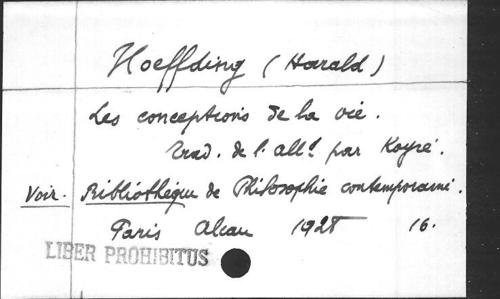 Hoeffding (Harald)
Les conceptions de la vie.
Trad. de l'alld par Koyré.
Voir. Bibliothèque de Philosophie contemporaine.
Paris Alcan 1928 16.
LIBER PROHIBITUS